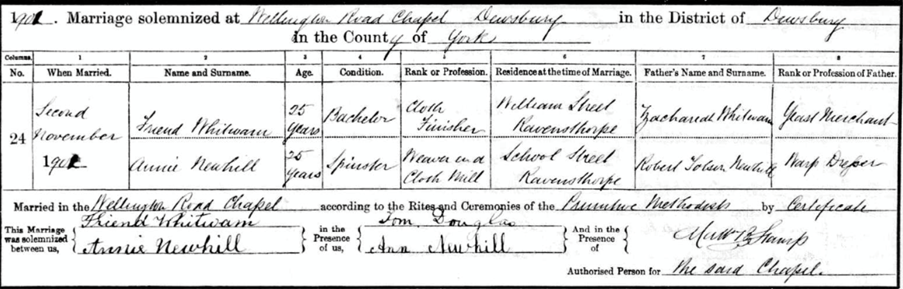 1901. Marriage solemnized at Wellington Road Chapel Dewsbury in the District of Dewsbury
in the County of York
Columns. 1 2 3 4 5 6 7 8
No. When Married. Name and Surname. Age. Condition. Rank or Profession. Residence at the time of Marriage. Father's Name and Surname. Rank or Profession of Father.
24 Second November 1901 Friend Whitwam 25 years Bachelor Cloth Finisher William Street Ravensthorpe Zachariah Whitwam Yeast Merchant
Annie Newhill 25 years Spinster Weaver in a Cloth Mill School Street Ravensthorpe Robert Tolson Newhill Warp Dresser
Married in the Wellington Road Chapel according to the Rites and Ceremonies of the Primitive Methodists by Certificate
This Marriage was solemnized between us, Friend Whitwam Annie Newhill in the Presence of us, Tom Douglas Ann Newhill And in the Presence of
Authorised Person for the said Chapel.